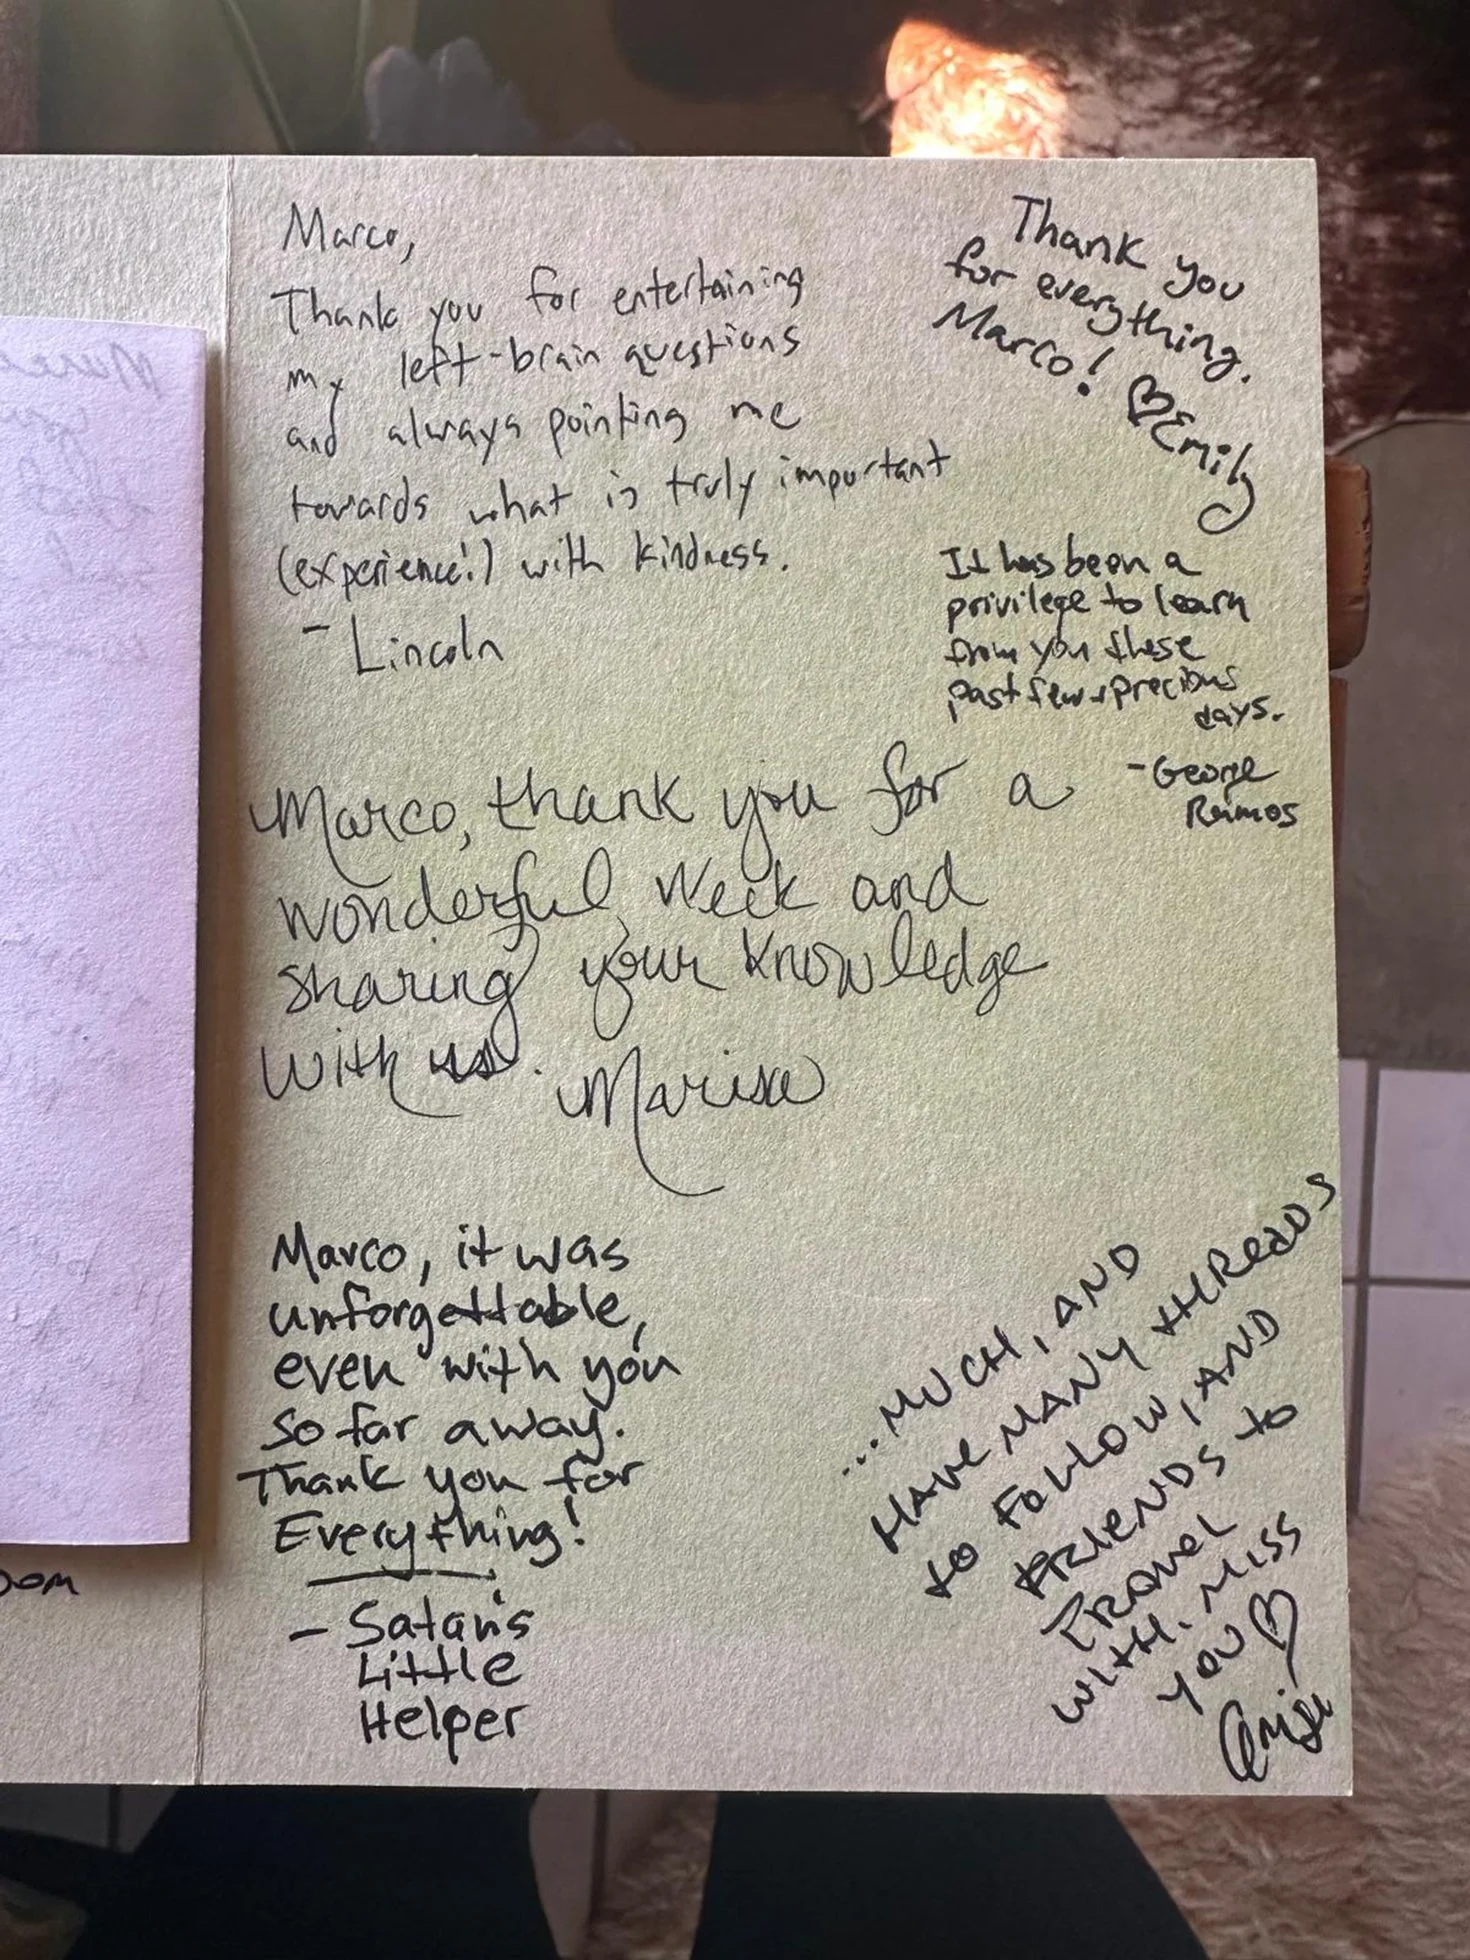 Marco,
Thank you for entertaining
my left-brain questions
and always pointing me
towards what is truly important
(experience!) with kindness.
- Lincoln
Thank you
for everything,
Marco!
♡Emily
It has been a
privilege to learn
from you these
past few precious
days.
-George
Ramos
Marco, thank you for a
wonderful week and
sharing your knowledge
with us. Marisa
Marco, it was
unforgettable,
even with you
so far away.
Thank you for
Everything!
- Satan's
Little
Helper
...MUCH, AND
HAVE MANY THREADS
to FOLLOW, AND
FRIENDS to
TRAVEL
WITH. MISS
YOU ♡